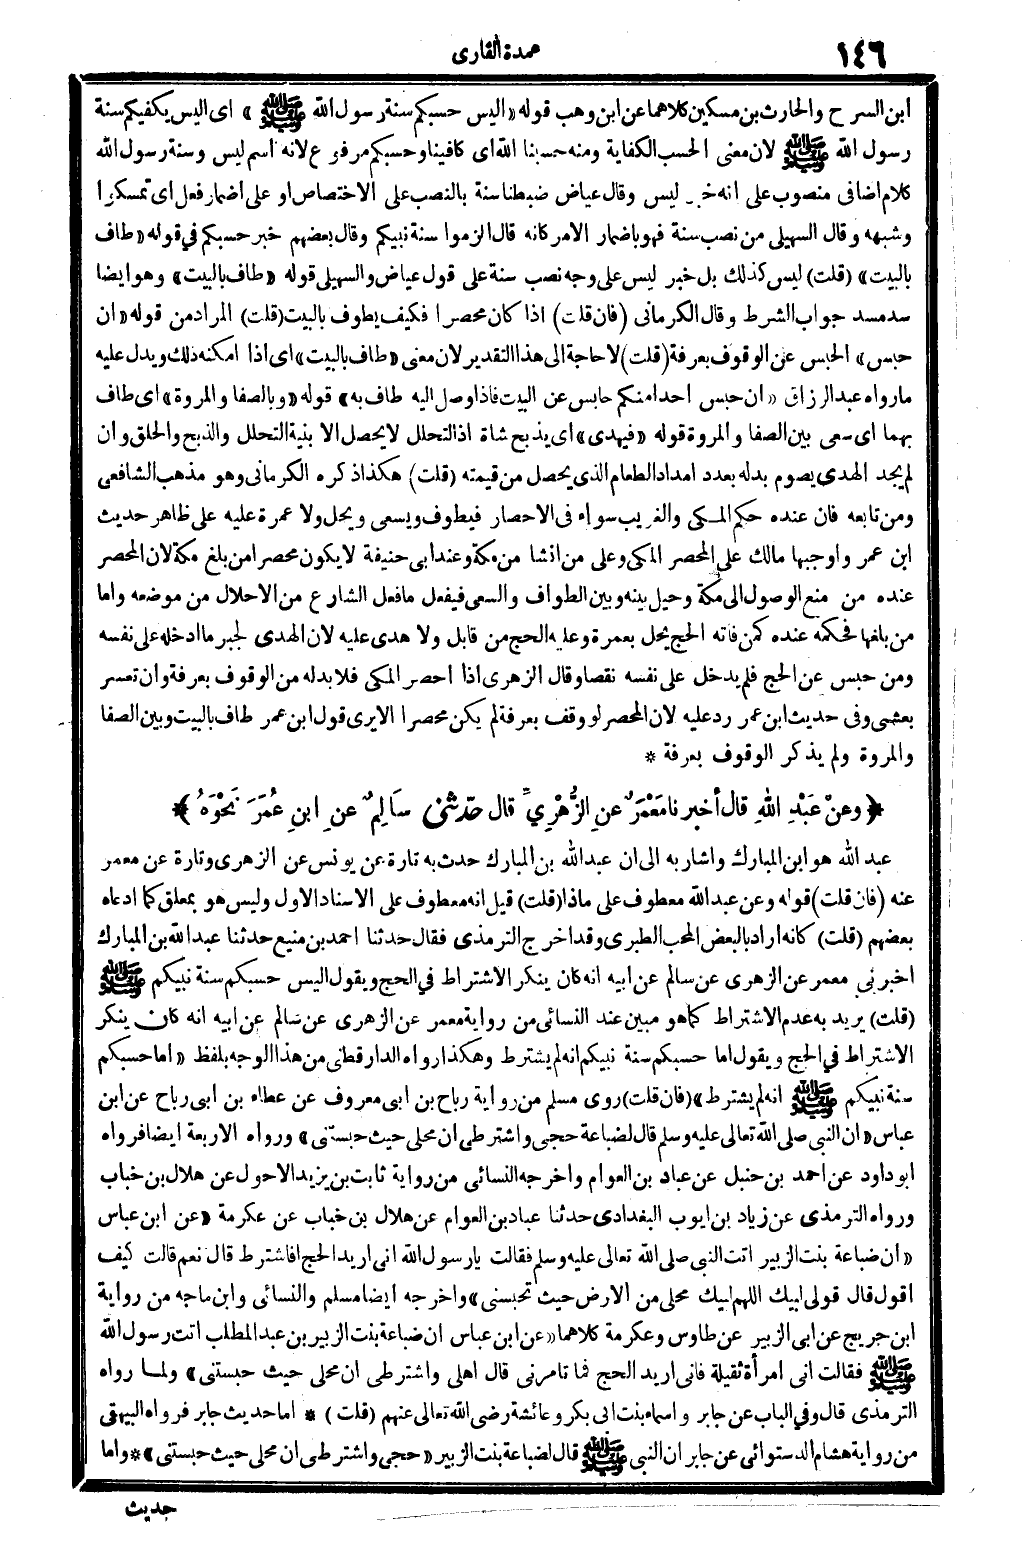 ١٤٦
عمدة القارى
ابن السرح والحارث بن مسكين كلاهما عن ابن وهب قوله «اليس حسبكم سنة رسول الله ﷺ» اى اليس يكفيكم سنة
رسول الله ﷺ لان معنى الحسب الكفاية ومنه حسبنا الله اى كافينا وحسبكم مرفوع لانه اسم ليس وسنة رسول الله
كلام اضافى منصوب على انه خبر ليس وقال عياض ضبطنا سنة بالنصب على الاختصاص او على اضمار فعل اى تمسكوا
وشبهه وقال السهيلى من نصب سنة فهو باضمار الامر كانه قال الزموا سنة نبيكم وقال بعضهم خبر حسبكم في قوله «طاف
بالبيت» (قلت) ليس كذلك بل خبر ليس على وجه نصب سنة على قول عياض والسهيلى قوله «طاف بالبيت» وهو ايضا
سد مسد جواب الشرط وقال الكرمانى (فان قلت) اذا كان محصرا فكيف يطوف بالبيت (قلت) المراد من قوله «ان
حبس» الحبس عن الوقوف بعرفة (قلت) لا حاجة الى هذا التقدير لان معنى «طاف بالبيت» اى اذا امكنه ذلك ويدل عليه
مارواه عبد الرزاق «ان حبس احدا منكم حابس عن البيت فاذا وصل اليه طاف به» قوله «وبالصفا والمروة» اى طاف
بهما اى سعى بين الصفا والمروة قوله «فيهدى» اى يذبح شاة اذ التحلل لا يحصل الا بنية التحلل والذبح والحلق وان
لم يجد الهدى يصوم بدله بعدد امداد الطعام الذى يحصل من قيمته (قلت) هكذا ذكره الكرمانى وهو مذهب الشافعى
ومن تابعه فان عنده حكم المكى والغريب سواء فى الاحصار فيطوف ويسعى ويحل ولا عمرة عليه على ظاهر حديث
ابن عمر واوجبها مالك على المحصر المكى وعلى من انشا من مكة وعند ابى حنيفة لا يكون محصرا من بلغ مكة لان المحصر
عنده من منع الوصول الى مكة وحيل بينه وبين الطواف والسعى فيفعل مافعل الشارع من الاحلال من موضعه واما
من بلغها فحكمه عنده كمن فاته الحج يحل بعمرة وعليه الحج من قابل ولا هدى عليه لان الهدى لجبر ما ادخله على نفسه
ومن حبس عن الحج فلم يدخل على نفسه نقصا وقال الزهرى اذا احصر المكى فلا بد له من الوقوف بعرفة وان تعسر
بعشى وفى حديث ابن عمر رد عليه لان المحصر لو وقف بعرفة لم يكن محصرا الا يرى قول ابن عمر طاف بالبيت وبين الصفا
والمروة ولم يذكر الوقوف بعرفة *
﴿وعنْ عَبْدِ اللهِ قال أخبرنا مَعْمَرٌ عنِ الزُّهْرِيِّ قال حدّثنى سَالِمٌ عنِ ابنِ عُمَرَ نَحْوَهُ﴾
عبد الله هو ابن المبارك واشار به الى ان عبدالله بن المبارك حدث به تارة عن يونس عن الزهرى وتارة عن معمر
عنه (فان قلت) قوله وعن عبدالله معطوف على ماذا (قلت) قيل انه معطوف على الاسناد الاول وليس هو بمعلق كما ادعاه
بعضهم (قلت) كانه اراد بالبعض المحب الطبرى وقد اخرج الترمذى فقال حدثنا احمد بن منيع حدثنا عبدالله بن المبارك
اخبرنى معمر عن الزهرى عن سالم عن ابيه انه كان ينكر الاشتراط في الحج ويقول اليس حسبكم سنة نبيكم ﷺ
(قلت) يريد به عدم الاشتراط كما هو مبين عند النسائى من رواية معمر عن الزهرى عن سالم عن ابيه انه كان ينكر
الاشتراط في الحج ويقول اما حسبكم سنة نبيكم انه لم يشترط وهكذا رواه الدارقطنى من هذا الوجه بلفظ «اما حسبكم
سنة نبيكم ﷺ انه لم يشترط» (فان قلت) روى مسلم من رواية رباح بن ابى معروف عن عطاء بن ابى رباح عن ابن
عباس «ان النبى صلى الله تعالى عليه وسلم قال لضباعة حجى واشترطى ان محلى حيث حبستنى» ورواه الاربعة ايضا فرواه
ابو داود عن احمد بن حنبل عن عباد بن العوام واخرجه النسائى من رواية ثابت بن يزيد الاحول عن هلال بن خباب
ورواه الترمذى عن زياد بن ايوب البغدادى حدثنا عباد بن العوام عن هلال بن خباب عن عكرمة «عن ابن عباس
«ان ضباعة بنت الزبير اتت النبى صلى الله تعالى عليه وسلم فقالت يارسول الله انى اريد الحج افاشترط قال نعم قالت كيف
اقول قال قولى لبيك اللهم لبيك محلى من الارض حيث تحبسنى» واخرجه ايضا مسلم والنسائى وابن ماجه من رواية
ابن جريج عن ابى الزبير عن طاوس وعكرمة كلاهما «عن ابن عباس ان ضباعة بنت الزبير بن عبد المطلب اتت رسول الله
ﷺ فقالت انى امرأة ثقيلة فانى اريد الحج فما تامرنى قال اهلى واشترطى ان محلى حيث حبستنى» ولما رواه
الترمذى قال وفي الباب عن جابر واسماء بنت ابى بكر وعائشة رضى الله تعالى عنهم (قلت) * اما حديث جابر فرواه البيهقى
من رواية هشام الدستوائى عن جابر ان النبى ﷺ قال لضباعة بنت الزبير «حجى واشترطى ان محلى حيث حبستنى» * واما
حديث